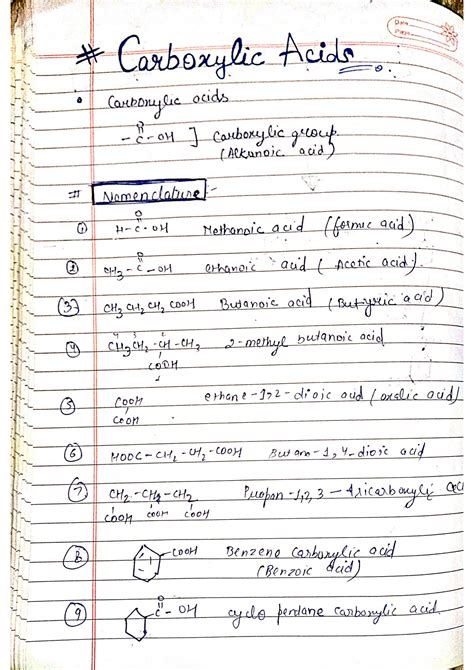 Date
Page
# Carboxylic Acids
• Carboxylic acids
O
-C-OH ] Carboxylic group.
(Alkanoic acid)
# Nomenclature :-
O
① H-C-OH Methanoic acid (formic acid)
O
② CH3-C-OH ethanoic acid (Acetic acid).
③ CH3 CH2 CH2 COOH Butanoic acid (Butyric acid)
4 3 2
④ CH3CH2-CH-CH3 2-methyl butanoic acid
COOH
1
⑤ COOH ethane-1,2-dioic acid (oxalic acid)
COOH
⑥ HOOC-CH2-CH2-COOH Butane-1,4-dioic acid
⑦ CH2-CH2-CH2 Propan-1,2,3-tricarboxylic
COOH COOH COOH
⑧ COOH Benzene carboxylic acid
(Benzoic acid)
O
⑨ C-OH cyclo pentane carboxylic acid